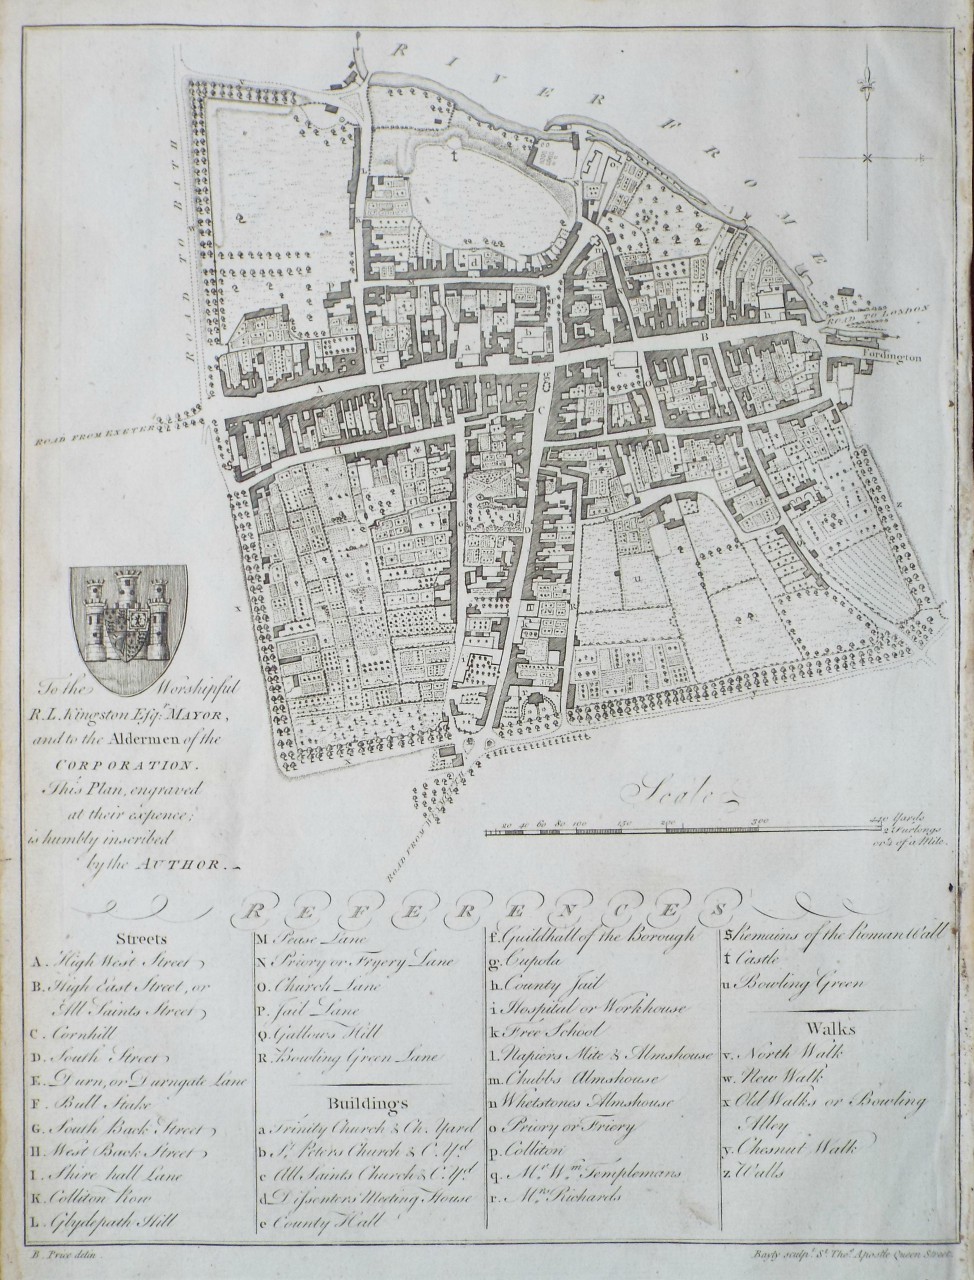 RIVER FROME
ROAD TO BATH
ROAD TO LONDON
Fordington
ROAD FROM EXETER
To the Worshipful
R.L. Kingston Esqr. MAYOR,
and to the Aldermen of the
CORPORATION.
This Plan, engraved
at their expence;
is humbly inscribed
by the AUTHOR.
ROAD FROM
Scale
20 40 60 80 100 150 200 300 440 Yards
2 Furlongs
or ¼ of a Mile.
REFERENCES
Streets
A. High West Street
B. High East Street, or
All Saints Street
C. Cornhill
D. South Street
E. Durn, or Durngate Lane
F. Bull Stake
G. South Back Street
H. West Back Street
I. Shire hall Lane
K. Colliton Row
L. Glydepath Hill
M Pease Lane
N Priory or Fryery Lane
O. Church Lane
P. Jail Lane
Q. Gallows Hill
R. Bowling Green Lane
Buildings
a Trinity Church & Ch. Yard
b St. Peters Church & C. Yd.
c All Saints Church & C. Yd.
d Dissenters Meeting House
e County Hall
f. Guildhall of the Borough
g. Cupola
h. County Jail
i. Hospital or Workhouse
k Free School
l. Napiers Mite & Almshouse
m. Chubbs Almshouse
n Whetstones Almshouse
o Priory or Friery
p. Colliton
q. Mr. Wm. Templemans
r. Mrs. Richards
S Remains of the Roman Wall
t Castle
u Bowling Green
Walks
v. North Walk
w. New Walk
x Old Walks or Bowling
Alley
y. Chesnut Walk
z. Walls
B. Price delin
Bayly sculpt. St. Thos. Apostle Queen Street.